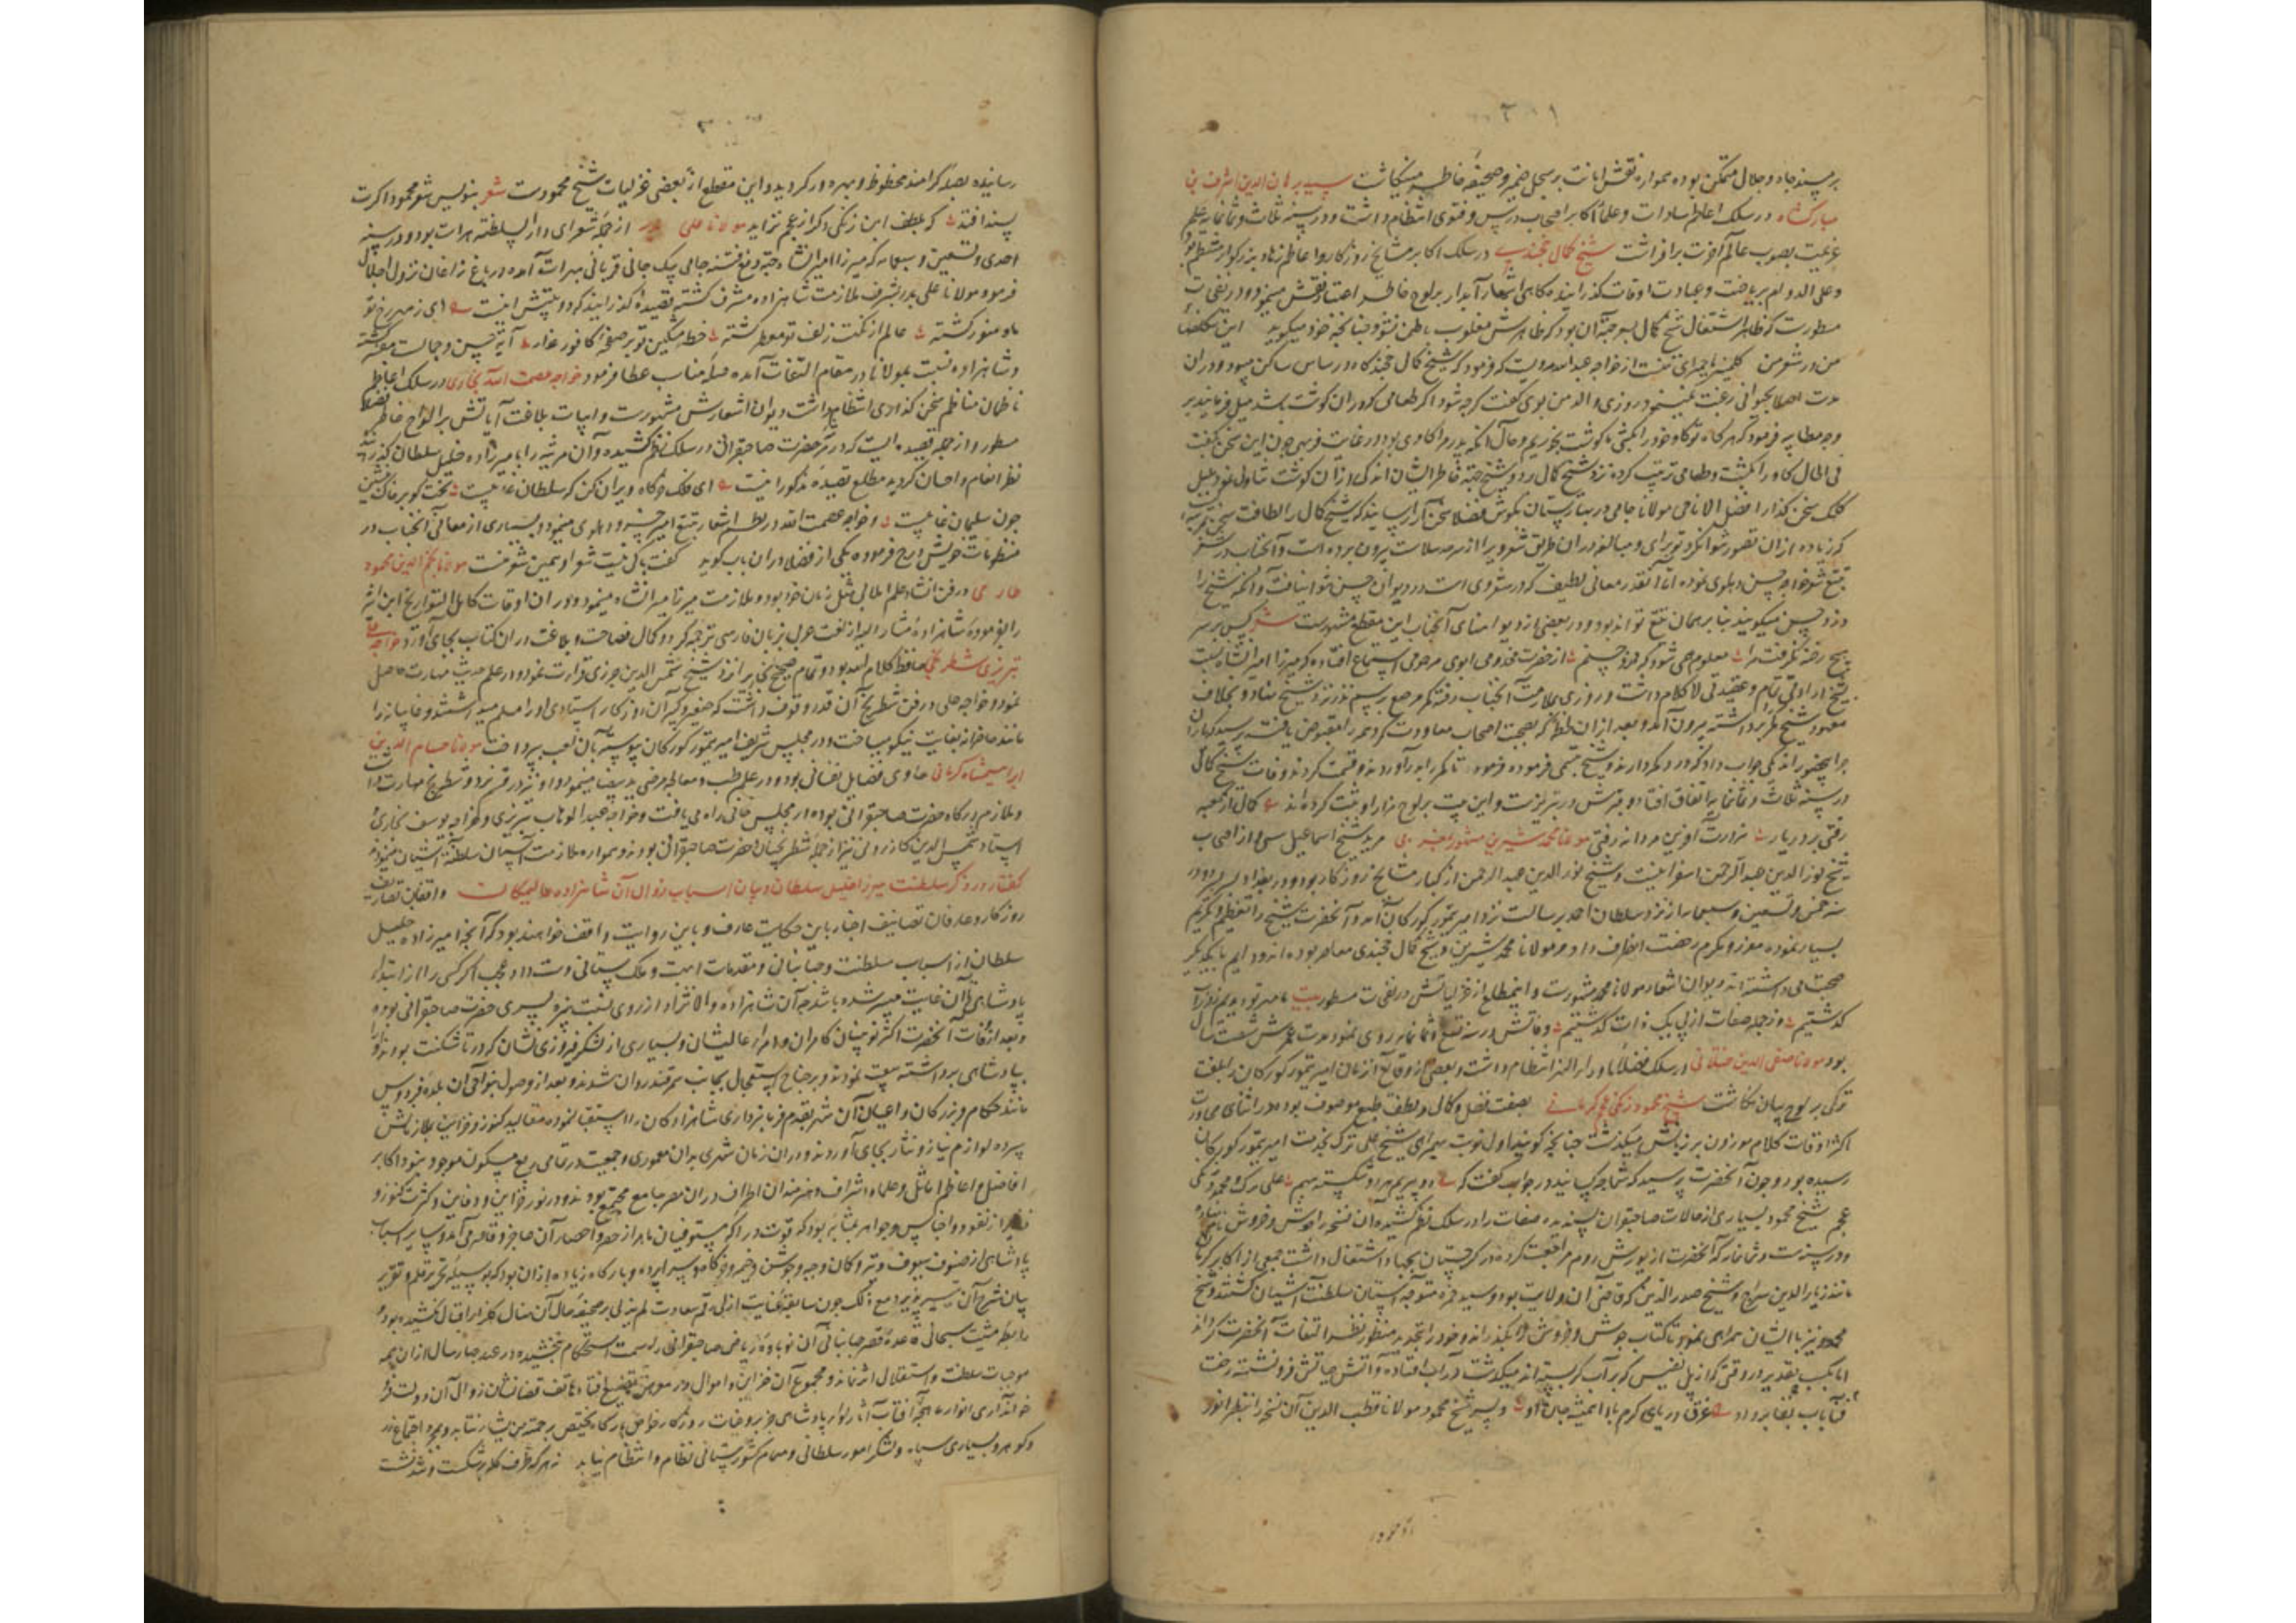 بر مسند جاه و جلال متمکن بوده همواره نقش امانت بر سجل ضمیر و صحیفه خاطر مینگاشت سید برهان الدین اشرف بن
مبارکشاه در سلک اعاظم سادات و علما و اکابر اصحاب درس و فتوی انتظام داشت و در سنه ثلاث و ثمانمایه علم
عزیمت بصوب عالم آخرت برافراشت شیخ کمال خجندی در سلک اکابر مشایخ روزکار و اعاظم زهاد بزرکوار منتظم بود
و علی الدوام بریاضت و عبادت اوقات کذرانیده کاهی اشعار آبدار بر لوح خاطر نقش مینمود و در نفحات
مسطورست که ظاهرا اشتغال شیخ کمال بشعر جهة آن بود که ظاهرش مغلوب باطن نشود چنانچه خود میکوید این تکلفها
من در شعر من کلمینی یا حمیرای منست از خواجه عبیدالله مرویست که فرمود که شیخ کمال خجند کاه در ساس ساکن میبود و در آن
مدت اصلا حیوانی رغبت نمینمود روزی والد من بوی کفت کرچه شود اکر طعامی که در آن کوشت باشد میل فرمایند بر
وجه مطایبه فرمود که هر کاه تو کاو خود را بکشی ما کوشت بخوریم و حال آنکه پدر مرا کاوی بود در غایت فربهی چون این سخن بکفت
فی الحال کاو را بکشت و طعامی ترتیب کرده نزد شیخ کمال برد و شیخ جهة خاطر ایشان اندکی از آن کوشت تناول نمود
کلک سخن کذار افضل الانامی مولانا جامی در بهارستان بکوش فضلا سخن آرا میرساند که شیخ کمال را لطافت سخن بمرتبه
که زیاده از آن تصور نتوان کرد
تتبع شعر خواجه حسن دهلوی نموده اما آنقدر معانی لطیف که در شعر وی است در دیوان حسن نتوان یافت و آنکه شیخ را
دزد حسن میکویند بنابر همان تتبع تواند بود و در بعضی از دیوانهای آنجناب این مقطع مشهورست شعر کس بر سر
هیچ رخنه نکرفت مرا معلوم همی شود که دزد حسنم از حضرت مخدومی ابوی مرحومی استماع افتاده که میرزا امیرانشاه نسبت
بشیخ ارادتی تمام و عقیدتی لاکلام داشت و روزی بملازمت آنجناب رفته کمر مرصع برسم نذر نزد شیخ بنهاد و بخلاف
معهود شیخ کمر برداشته بیرون آمد و بعد از آن لحظه که بصحبت اصحاب معاودت کرد
شیخ تبسمی فرموده فرمود تا کمر را بدر آوردند و قسمت کردند وفات شیخ کمال
در سنه ثلاث و ثمانمایه اتفاق افتاد و قبرش در تبریزست و این بیت بر لوح مزار او ثبت کرده اند کمال از کعبه
رفتی بر در یار هزارت آفرین مردانه رفتی مولانا محمد شیرین مشهور بمغربی مرید شیخ اسماعیل سیسی از اصحاب
شیخ نورالدین عبدالرحمن اسفراینیست و شیخ نورالدین عبدالرحمن از کبار مشایخ روزکار بود و در بغداد بسر میبرد و در
سنه خمس و تسعین و سبعمایه از نزد سلطان احمد برسالت نزد امیر تیمور کورکان آمد و آنحضرت شیخ را تعظیم و تکریم
بسیار نموده معزز و مکرم رخصت انصراف داد و مولانا محمد شیرین و شیخ کمال خجندی معاصر بوده اند و دایم با یکدیکر
صحبت می داشته اند و دیوان اشعار مولانا محمد مشهورست و این مطلع از غزلیاتش در نفحات مسطور بیت
کذشتیم وز جمله صفات از پی یک ذات کذشتیم وفاتش در سنه تسع و ثمانمایه روی نمود مدت عمرش شصت سال
بود مولانا صفی الدین ختلانی در سلک فضلای ماوراءالنهر انتظام داشت و بعضی از وقایع آن زمان امیر تیمور کورکان را بلغت
ترکی بر لوح بیان نکاشت شیخ محمود زنکی عجم کرمانی بصفت فضل و کمال و لطف طبع موصوف بود و در اثنای محاورت
اکثر اوقات کلام موزون بر زبانش میکذشت چنانچه کویند اول نوبت بهمراهی شیخ علی ترک بخدمت امیر تیمور کورکان
رسیده بود و چون آنحضرت پرسید که شما چه کسانید در جواب کفت که دو پیریم مراد شکسته بهم علی ترک و محمود زنکی
عجم شیخ محمود بسیاری از حالات صاحبقران پسندیده صفات را در سلک نظم کشیده آن نسخه را جوش و خروش نام نهاد
و در سنه ست و ثمانمایه که آنحضرت از یورش روم مراجعت کرده در کرجستان بجهاد اشتغال داشت جمعی از اکابر کرمان
مانند زیاء الدین سراج و شیخ صدرالدین که قاضی آن ولایت بود و سید حمزه متوجه آستان سلطنت آشیان کشتند و شیخ
محمود نیز با ایشان همراهی نمود تا کتاب جوش و خروش را بکذراند و خود را بتجدید منظور نظر التفات آنحضرت کرداند
اما بحسب تقدیر در وقتی که از پل تفلیس که بر آب کر بسته اند میکذشت در آب افتاده و آتش حیاتش فرو نشسته رخت
بقا بباد فنا برداد غرق دریای کرم بادا همیشه جان او و پسر شیخ محمود مولانا قطب الدین آن نسخه را بنظر انور
رسانیده بصله کرامند محظوظ و بهره ور کردید و این مقطع از بعضی غزلیات شیخ محمودست شعر بنویس شعر محمود اکرت
پسند افتد که بلطف این زنکی دکر از عجم نزاید مولانا علی بدر از جمله شعرای دارالسلطنه هرات بود و در سنه
احدی و تسعین و سبعمایه که میرزا امیرانشاه جهة دفع فتنه حاجی بیک جانی قربانی بهرات آمده در باغ زاغان نزول اجلال
فرمود مولانا علی بدر بشرف ملازمت شاهزاده مشرف کشته قصیده کذرانید که دو بیتش اینست ای ز مهر رخ تو
ماه منور کشته عالم از نکهت زلف تو معطر کشته خط مشکین تو بر صفحه کافور عذار آیة حسن و جمالست مفسر کشته
و شاهزاده نسبت بمولانا در مقام التفات آمده صله مناسب عطا فرمود خواجه عصمت الله بخاری در سلک اعاظم
ناظمان مناظم سخن کذاری انتظام داشت دیوان اشعارش مشهورست و ابیات بلاغت آیاتش بر الواح خاطر فضلا
مسطور و از جمله قصیده ایست که در مرثیه حضرت صاحبقرانی در سلک نظم کشیده و آن مرثیه را بامیرزاده خلیل سلطان کذرانیده
نظر انعام و احسان کردید مطلع قصیده مذکور اینست ای فلک خرکاه ویران کن که سلطان غایبست تخت کو بر خاک نشین
چون سلیمان غایبست و خواجه عصمت الله در نظم اشعار تتبع امیر خسرو دهلوی مینمود و بسیاری از معانی آنجناب در
منظومات خویش درج فرموده یکی از فضلا در آن باب کوید
مولانا نجم الدین محمود
در فن انشاء و علم امثال بی مثل زمان خود بود و ملازمت میرزا میرانشاه مینمود و در آن اوقات کامل التواریخ ابن اثیر
را بفرموده شاهزاده مشار الیه از لغت عربی بزبان فارسی ترجمه کرد و کمال فصاحت و بلاغت در آن کتاب بجای آورد خواجه علی
تبریزی شطرنجی حافظ کلام الله بود و تمام صحیح بخاری از نزد شیخ شمس الدین جزری قراءت نمود و در علم حدیث مهارت حاصل
نمود و خواجه علی در فن شطرنج آن قدر وقوف داشت که صغیر و کبیر آن روزکار استادی او را مسلم میداشتند و غایبانه را
مانند حاضرانه بغایت نیکو میباخت و در مجلس شریف امیر تیمور کورکان پیوسته بآن لعب می پرداخت مولانا حسام الدین
ابراهیمشاه کرمانی حاوی فضایل نفسانی بود و در علم طب و معالجه مرضی ید بیضا مینمود و او نیز در فن نرد و شطرنج مهارت داشت
و ملازم درکاه حضرت صاحبقرانی بوده در مجلس خانی راه می یافت و خواجه عبدالوهاب تبریزی و خواجه یوسف بخاری
استاد شمس الدین کازرونی نیز از جمله شطرنجیان حضرت صاحبقرانی بودند و همواره ملازمت آستان سلطنت آشیان مینمودند
کفتار در ذکر سلطنت میرزا خلیل سلطان و بیان اسباب زوال آن شاهزاده عالیمکان واقفان تصاریف
روزکار و عارفان تصانیف اخبار باین حکایت عارف و باین روایت واقف خواهند بود که آنچه امیرزاده خلیل
سلطان از اسباب سلطنت و جهانبانی و مقدمات ابهت و ملک ستانی دست داد عجب اکر کسی را از ابتدای
پادشاهی تا آن غایت میسر شده باشد چه آن شاهزاده والانژاد از روی نسبت نبیره پسری حضرت صاحبقرانی بوده
و بعد از وفات آنحضرت اکثر نویینان کامران و امراء عالیشان و بسیاری از لشکر فیروزی نشان که در تاشکنت بودند او را
بپادشاهی برداشته بیعت نمودند و بر جناح استعجال بجانب سمرقند روان شدند و بعد از وصول بنواحی آن بلده فردوس
مانند حکام و بزرکان و اعیان آن شهر بقدم فرمانبرداری شاهزاده کامران را استقبال نموده مقالید کنوز و خزاین بملازمانش
سپرده لوازم نیاز و نثار بجای آوردند و در آن زمان شهری بدان معموری و جمعیت در تمامی ربع مسکون موجود نبود و اکابر
افاضل و اعاظم اماثل و علماء اشراف و هنرمندان اطراف در آن مصر جامع مجتمع بودند و در وفور خزاین و دفاین و کثرت کنوز و
ذخایر از نقود و اجناس و جواهر بمثابه بود که قوت دراکه مستوفیان ماهر از حصر و احصار آن عاجز و قاصر می آمد و سایر اسباب
پادشاهی از صنوف سیوف و تیر و کمان و جیبه و جوشن و خیمه و خرکاه و سراپرده و بارکاه زیاده از آن بود که بوسیله تحریر قلم و تقریر
بیان شرح آن تیسیر پذیرد مع ذلک چون سابقه عنایت ازلی رقم سعادت لم یزلی بر صحیفه حال آن نهال کلزار اقبال نکشیده بود و
رابطه مشیت سبحانی قاعده قصر جهانبانی آن نوباوه ریاض صاحبقرانی را سمت استحکام نبخشیده در عرض چهار سال از آن همه
موجبات سلطنت و استقلال اثر نماند و مجموع آن خزاین و اموال در معرض تضییع افتاده هاتف قضا نشان زوال آن دولت
وکوهر و بسیاری سپاه و لشکر امور سلطانی و مهام کشورستانی نظام و انتظام نیابد نه هر که طرف کله کج شکست و تند نشست